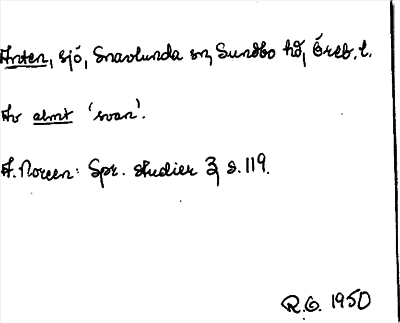 Anten, sjö, Snavlunda sn, Sundbo hd, Öreb. l.
Av almt 'svan'.
A. Noreen: Spr. studier 3, s. 119.
R.G. 1950